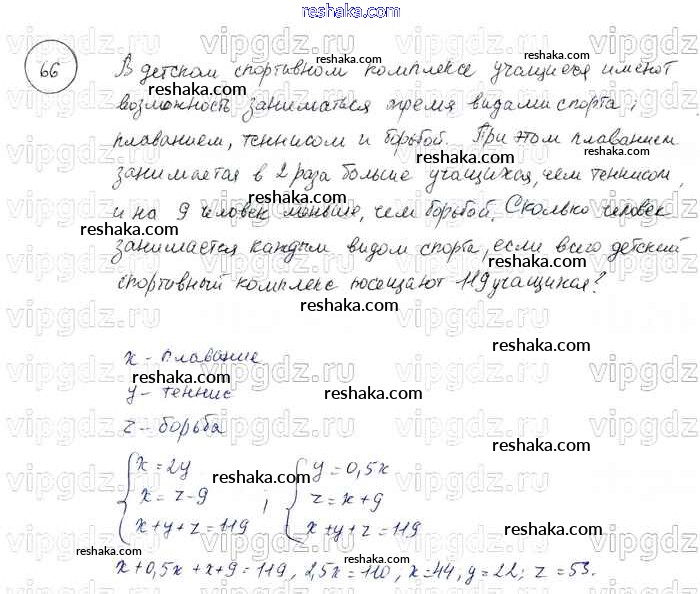 reshaka.com
66
В детском спортивном комплексе учащиеся имеют
возможность заниматься тремя видами спорта:
плаванием, теннисом и борьбой. При этом плаванием
занимается в 2 раза больше учащихся, чем теннисом,
и на 9 человек меньше, чем борьбой. Сколько человек
занимается каждым видом спорта, если всего детский
спортивный комплекс посещают 119 учащихся?
x - плавание
y - теннис
z - борьба
x = 2y
x = z - 9
x + y + z = 119
;
y = 0,5x
z = x + 9
x + y + z = 119
x + 0,5x + x + 9 = 119, 2,5x = 110, x = 44, y = 22; z = 53.